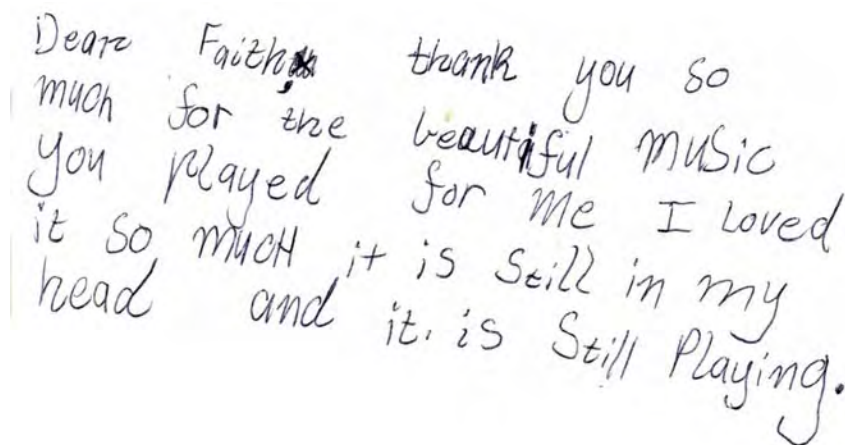 Dear Faith, thank you so
much for the beautiful music
you played for me I loved
it so mucH it is Still in my
head and it. is Still Playing.